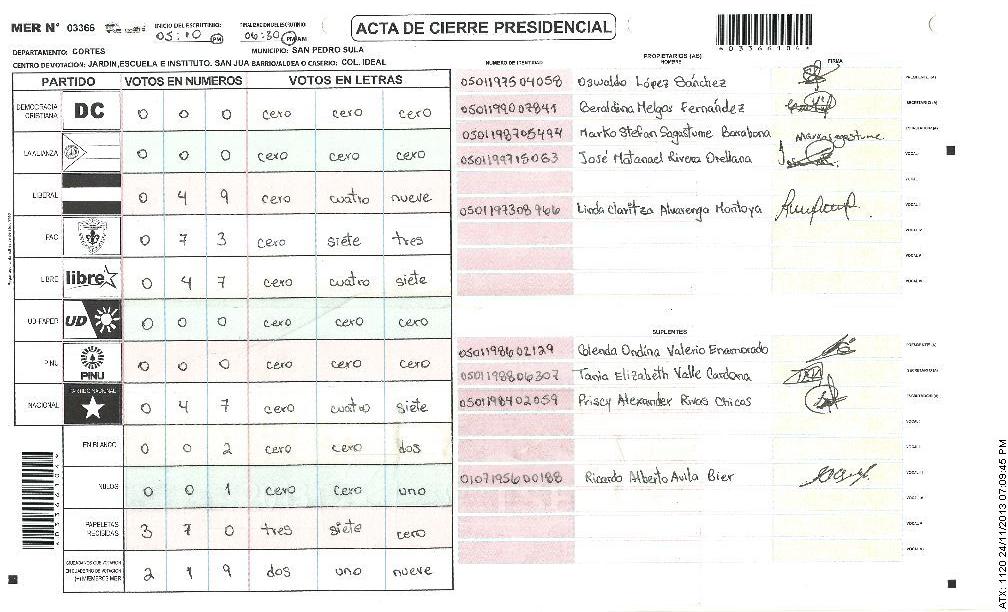 MER N° 03366
INICIO DEL ESCRUTINIO
05:10 PM
FINALIZACION DEL ESCRUTINIO
06:30 PM AM
ACTA DE CIERRE PRESIDENCIAL
DEPARTAMENTO: CORTES
MUNICIPIO: SAN PEDRO SULA
CENTRO DE VOTACION: JARDIN,ESCUELA E INSTITUTO. SAN JUA BARRIO/ALDEA O CASERIO: COL. IDEAL
PARTIDO VOTOS EN NUMEROS VOTOS EN LETRAS
DEMOCRACIA CRISTIANA DC 0 0 0 cero cero cero
LA ALIANZA 0 0 0 cero cero cero
LIBERAL 0 4 9 cero cuatro nueve
PAC 0 7 3 cero siete tres
LIBRE libre 0 4 7 cero cuatro siete
UD-FAPER UD 0 0 0 cero cero cero
PINU PINU 0 0 0 cero cero cero
NACIONAL PARTIDO NACIONAL 0 4 7 cero cuatro siete
EN BLANCO 0 0 2 cero cero dos
NULOS 0 0 1 cero cero uno
PAPELETAS RECIBIDAS 3 7 0 tres siete cero
CIUDADANOS QUE VOTARON EN CUADERNO DE VOTACION (+) MIEMBROS MER 2 1 9 dos uno nueve
PROPIETARIOS (AS)
NUMERO DE IDENTIDAD NOMBRE FIRMA
0501197504058 Oswaldo López Sánchez PRESIDENTE (A)
0501199007841 Beraldina Melgar Fernández SECRETARIO (A)
0501198705494 Marko Stefan Sagastume Barahona Marko sagastume ESCRUTADOR (A)
0501199715063 José Matanael Rivera Orellana VOCAL I
VOCAL II
0501197308966 Linda Claritza Alvarenga Montoya VOCAL III
VOCAL IV
VOCAL V
VOCAL VI
SUPLENTES
0501198602129 Glenda Ondina Valerio Enamorado PRESIDENTE (A)
0501198806307 Tania Elizabeth Valle Cardona SECRETARIO (A)
0501198402059 Priscy Alexander Rivas Chicas ESCRUTADOR (A)
VOCAL I
VOCAL II
0107195600188 Ricardo Alberto Avila Bier VOCAL III
VOCAL IV
VOCAL V
VOCAL VI
ATX: 1120 24/11/2013 07:09:45 PM